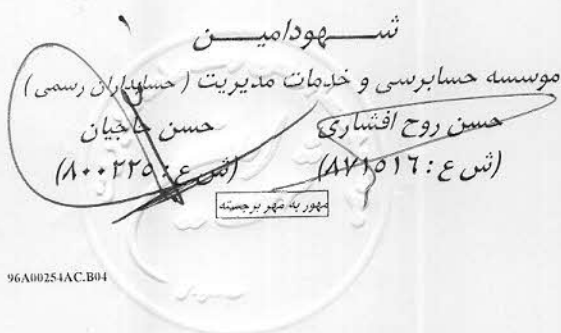 شهود امین
موسسه حسابرسی و خدمات مدیریت (حسابداران رسمی)
حسن روح افشاری حسن حاجیان
(ش ع: ۸۷۱۵۱۶) (ش ع: ۸۰۰۲۲۵)
ممهور به مهر برجسته
96A00254AC.B04